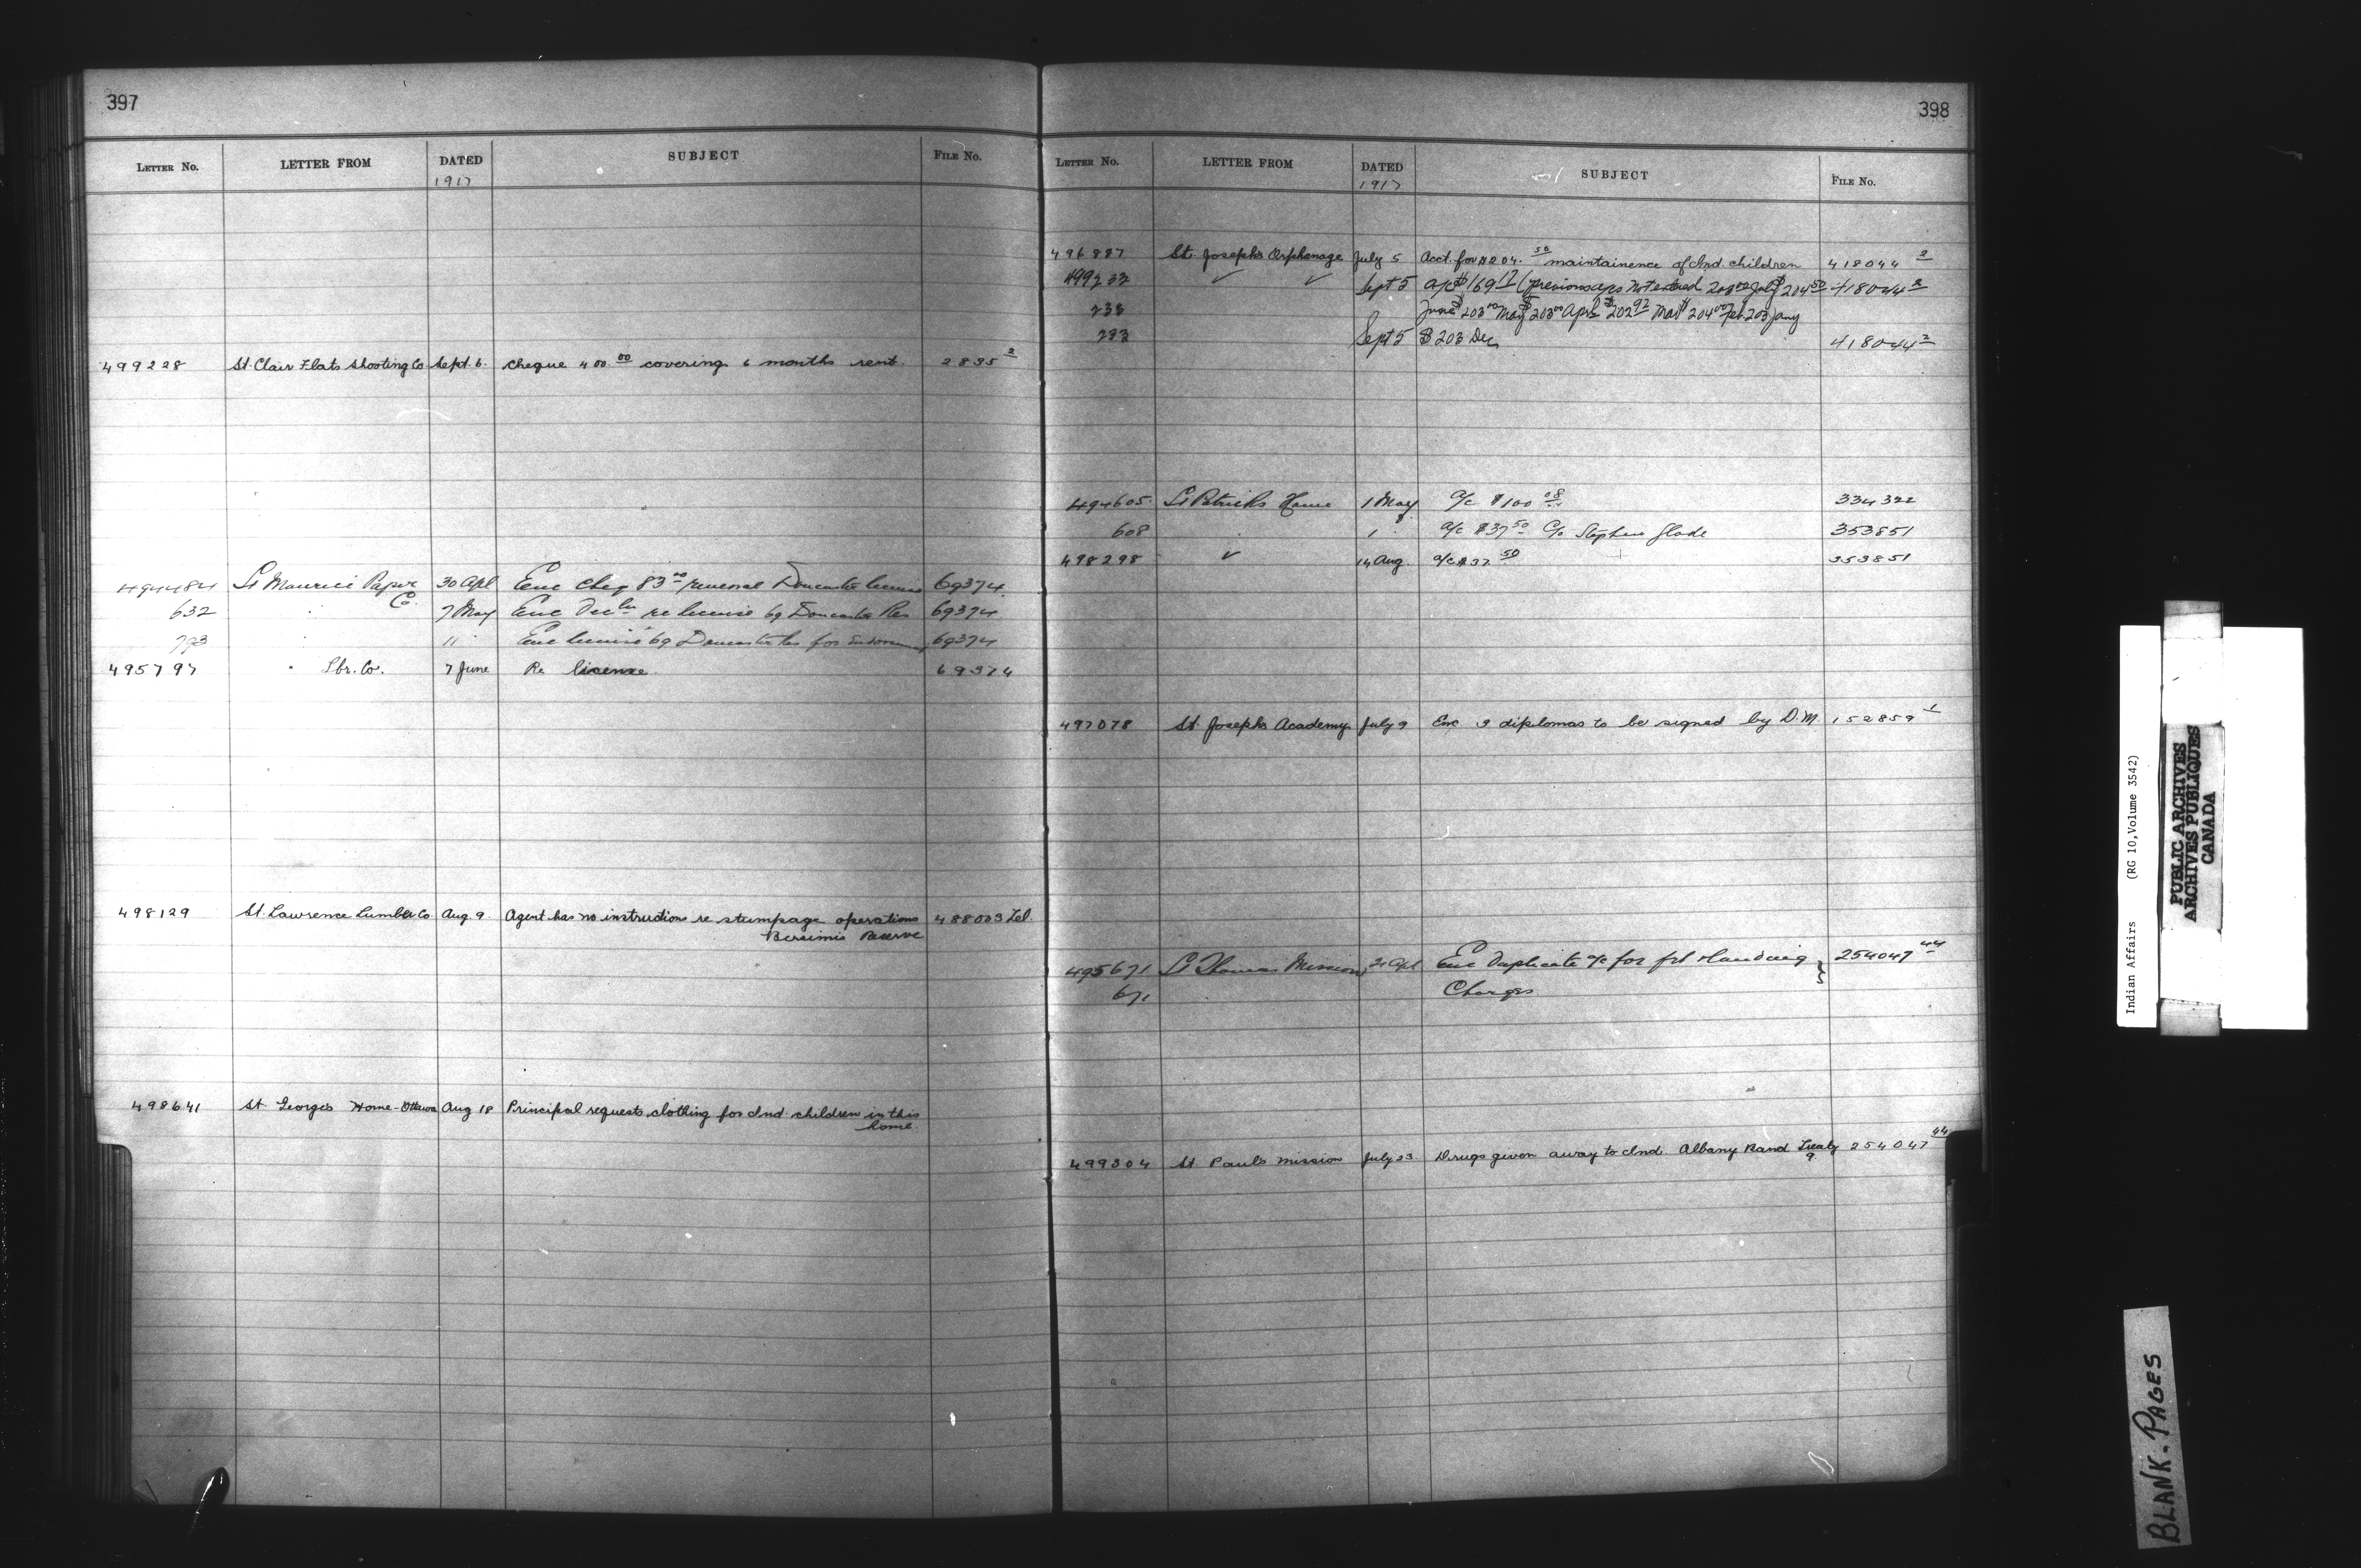 397
LETTER No. LETTER FROM DATED SUBJECT FILE No.
1917
499228 St. Clair Flats Shooting Co Sept. 6. Cheque 400.00 covering 6 months rent. 2835 2
494484 St Maurice Paper 30 Apl Enc cheq 83.00 renewal Doncaster license 69374
Co.
632 " 7 May Enc re license 69 Doncaster Res 69374
793 " 11 " Enc license 69 Doncaster Res for 69374
495797 " Lbr. Co. 7 June Re license 69374
498129 St. Lawrence Lumber Co Aug 9. Agent has no instructions re stumpage operations 488003 Tel.
Bersimis Reserve
498641 St George's Home-Ottawa Aug 18 Principal requests clothing for Ind. children in this
home.
398
LETTER No. LETTER FROM DATED SUBJECT FILE No.
1917
496887 St. Joseph's Orphanage July 5 Acct. for $204.50 maintainence of Ind. children 418044 2
499232 ✓ ✓ Sept 5 a/c $169 17 (previous a/cs not entered July $204 50 418044 2
233 June $203 00 May $203 00 Apr. $202 97 Mar $204 00 Feb. 203 Jany
233 Sept 5 $203 Dec. 418044 2
494605 St Patricks Home 1 May a/c $100 08 334322
608 " 1 " a/c $37 50 C/o Stephen Glode 353851
498298 ✓ 14 Aug. a/c $37 50 353851
497078 St. Joseph's Academy July 9 Enc 3 diplomas to be signed by D.M. 152859 1
495671 St Thomas Mission Apl Enc Duplicate a/c for frt Handling } 254047 44
671 " Charges
499304 St Paul's Mission July 23 Drugs given away to Ind. Albany Band Treaty 254047 44
9.
Indian Affairs (RG 10, Volume 3542)
PUBLIC ARCHIVES
ARCHIVES PUBLIQUES
CANADA
BLANK-PAGES